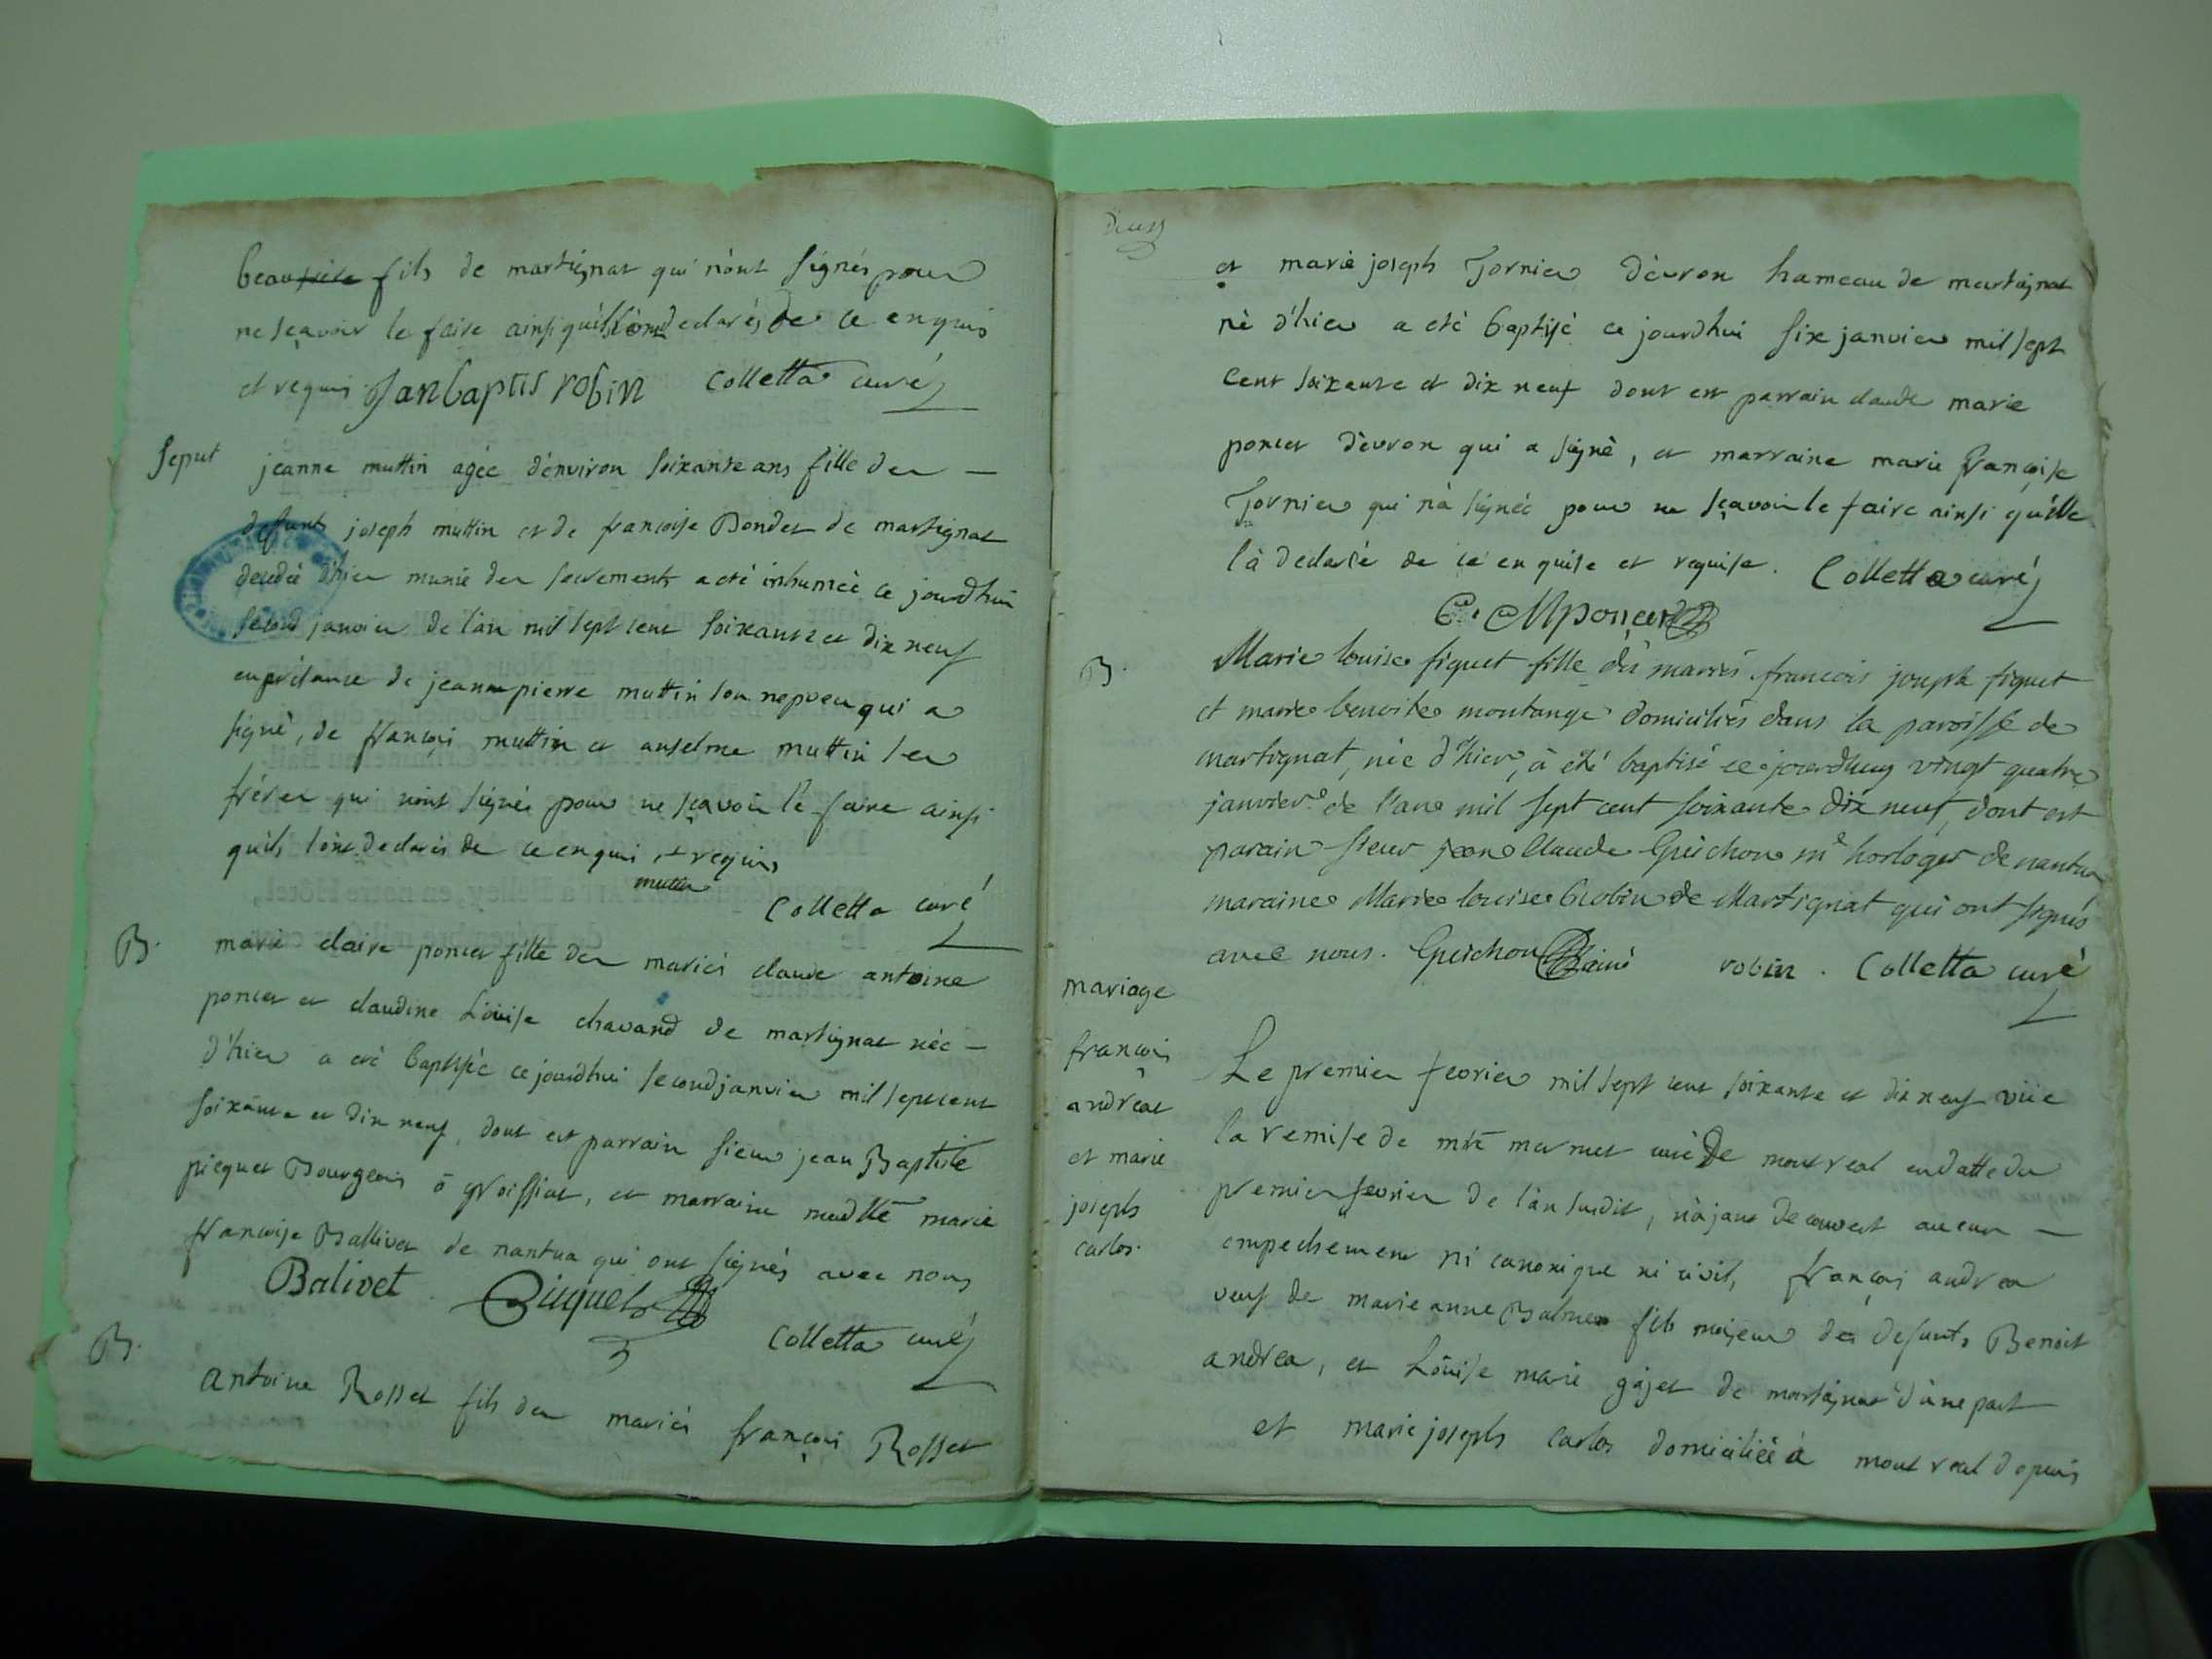 beaufrere fils de martignat qui n'ont signés pour
ne sçavoir le faire ainsi quils l'ont declarés de ce enquis
et requis Janbaptis robin Colletta curé
seput jeanne muttin agée d'environ soixante ans fille des
defunts joseph muttin et de françoise Bondet de martignat
decedée d'hier munie des sacrements a eté inhumée ce jourdhui
second janvier de l'an mil sept cent soixante et dix neuf
en présence de jeanpierre muttin son nepveu qui a
signé, de françois muttin et anselme muttin ses
fréres qui n'ont signés pour ne sçavoir le faire ainsi
quils l'ont declarés de ce enquis et requis
mutin
Colletta curé
B. marie claire poncet fille des mariés claude antoine
poncet et claudine Loüise chavand de martignat née
d'hier a eté baptisée ce jourdhui second janvier mil sept cent
soixante et dix neuf, dont est parrain sieur jean Baptiste
piequet Bourgeois à groissiat, et marraine madlle marie
françoise Ballivet de nantua qui ont signés avec nous
Balivet Piquet
Colletta curé
B. antoine Rosset fils des mariés françois Rosset
deux
et marie joseph Tornier d'evron hameau de martignat
né d'hier a eté baptisé ce jourdhui six janvier mil sept
cent soixante et dix neuf dont est parrain claude marie
poncet d'evron qui a signé, et marraine marie françoise
Tornier qui n'a signée pour ne sçavoir le faire ainsi qu'elle
l'a declarée de ce enquise et requise. Colletta curé
C. Mponcet
B. Marie louise fiquet fille des mariés francois joseph fiquet
et marie benoite montange domiciliés dans la paroisse de
martignat, née d'hier, à été baptisé ce jourdhuy vingt quatre
janvier de l'an mil sept cent soixante dix neuf, dont est
parain sieur jean Claude Guichon md horloger de nantua
maraine Marie louise Robin de Martignat qui ont signés
avec nous. Guichon ainé robin. Colletta curé
mariage
françois
andreat
et marie
joseph
carlos.
Le premier fevrier mil sept cent soixante et dix neuf vüe
la remise de mre marmet curé de montreal en datte du
premier fevrier de l'an susdit, n'ajant decouvert aucun
empechement ni canonique ni civil, françois andrea
veuf de marie anne Balmen fils majeur des defunts Benoit
andrea, et Loüise marie gajet de martignat d'une part
et marie joseph carlos domiciliée à montreal depuis